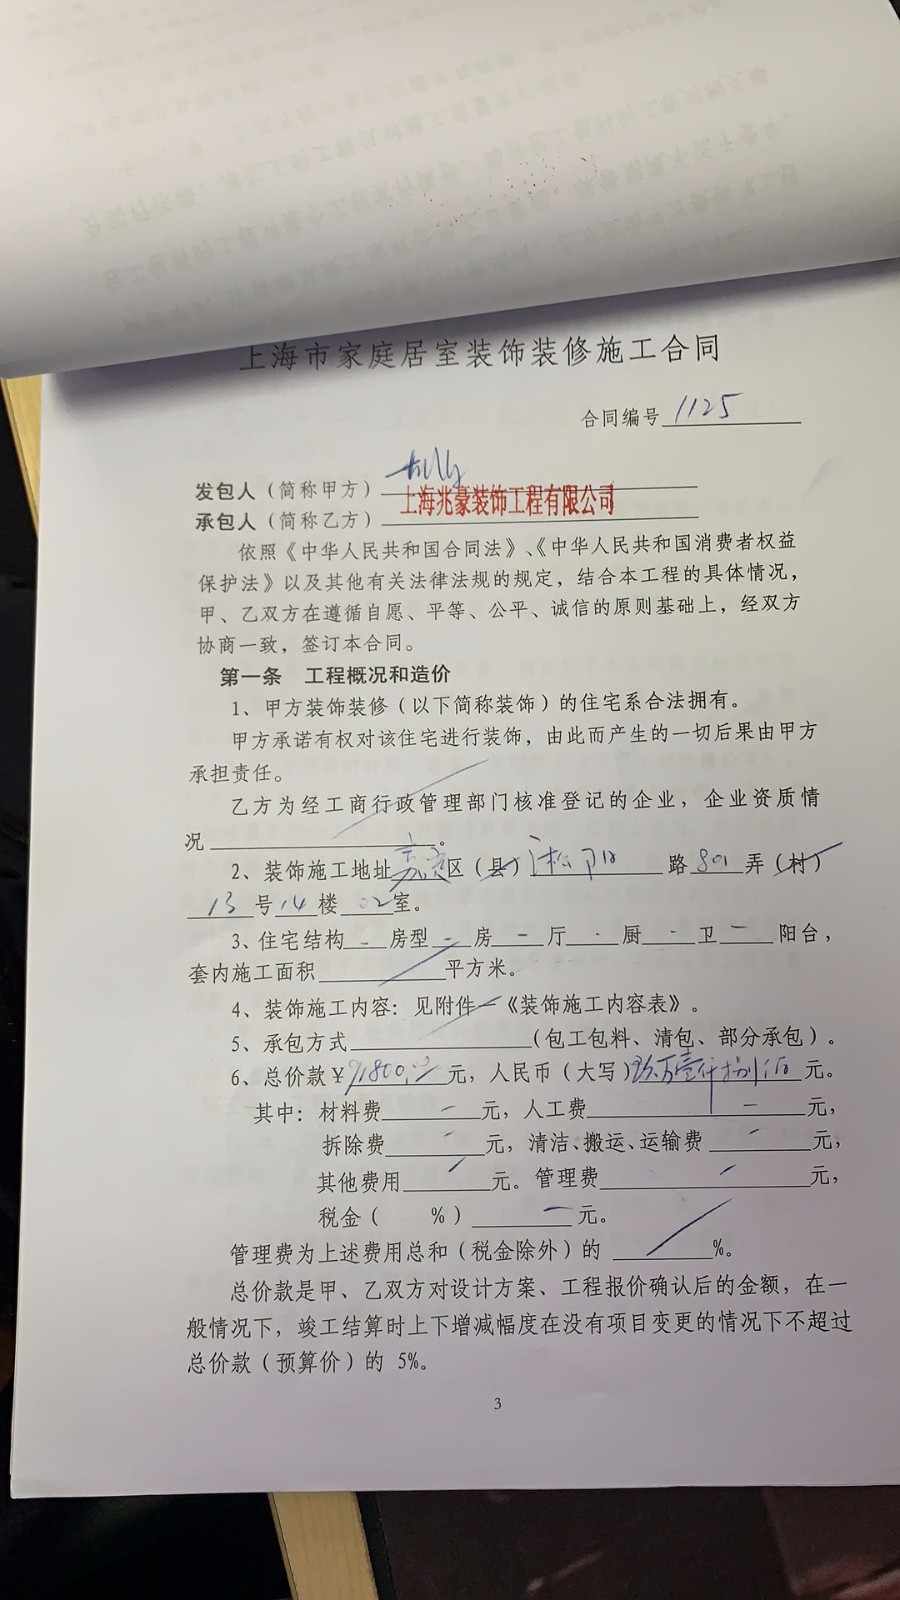 上海市家庭居室装饰装修施工合同
合同编号 1125
发包人（简称甲方）
承包人（简称乙方）上海兆豪装饰工程有限公司
依照《中华人民共和国合同法》、《中华人民共和国消费者权益
保护法》以及其他有关法律法规的规定，结合本工程的具体情况，
甲、乙双方在遵循自愿、平等、公平、诚信的原则基础上，经双方
协商一致，签订本合同。
第一条 工程概况和造价
1、甲方装饰装修（以下简称装饰）的住宅系合法拥有。
甲方承诺有权对该住宅进行装饰，由此而产生的一切后果由甲方
承担责任。
乙方为经工商行政管理部门核准登记的企业，企业资质情
况 。
2、装饰施工地址 嘉定 区（县） 路 801 弄（村）
13 号 14 楼 02 室。
3、住宅结构 - 房型 - 房 - 厅 - 厨 - 卫 - 阳台，
套内施工面积 平方米。
4、装饰施工内容：见附件一《装饰施工内容表》。
5、承包方式 （包工包料、清包、部分承包）。
6、总价款￥91800.00 元，人民币（大写）玖万壹仟捌佰 元。
其中：材料费 - 元，人工费 - 元，
拆除费 - 元，清洁、搬运、运输费 - 元，
其他费用 - 元。管理费 - 元，
税金（ %） - 元。
管理费为上述费用总和（税金除外）的 %。
总价款是甲、乙双方对设计方案、工程报价确认后的金额，在一
般情况下，竣工结算时上下增减幅度在没有项目变更的情况下不超过
总价款（预算价）的 5%。
3